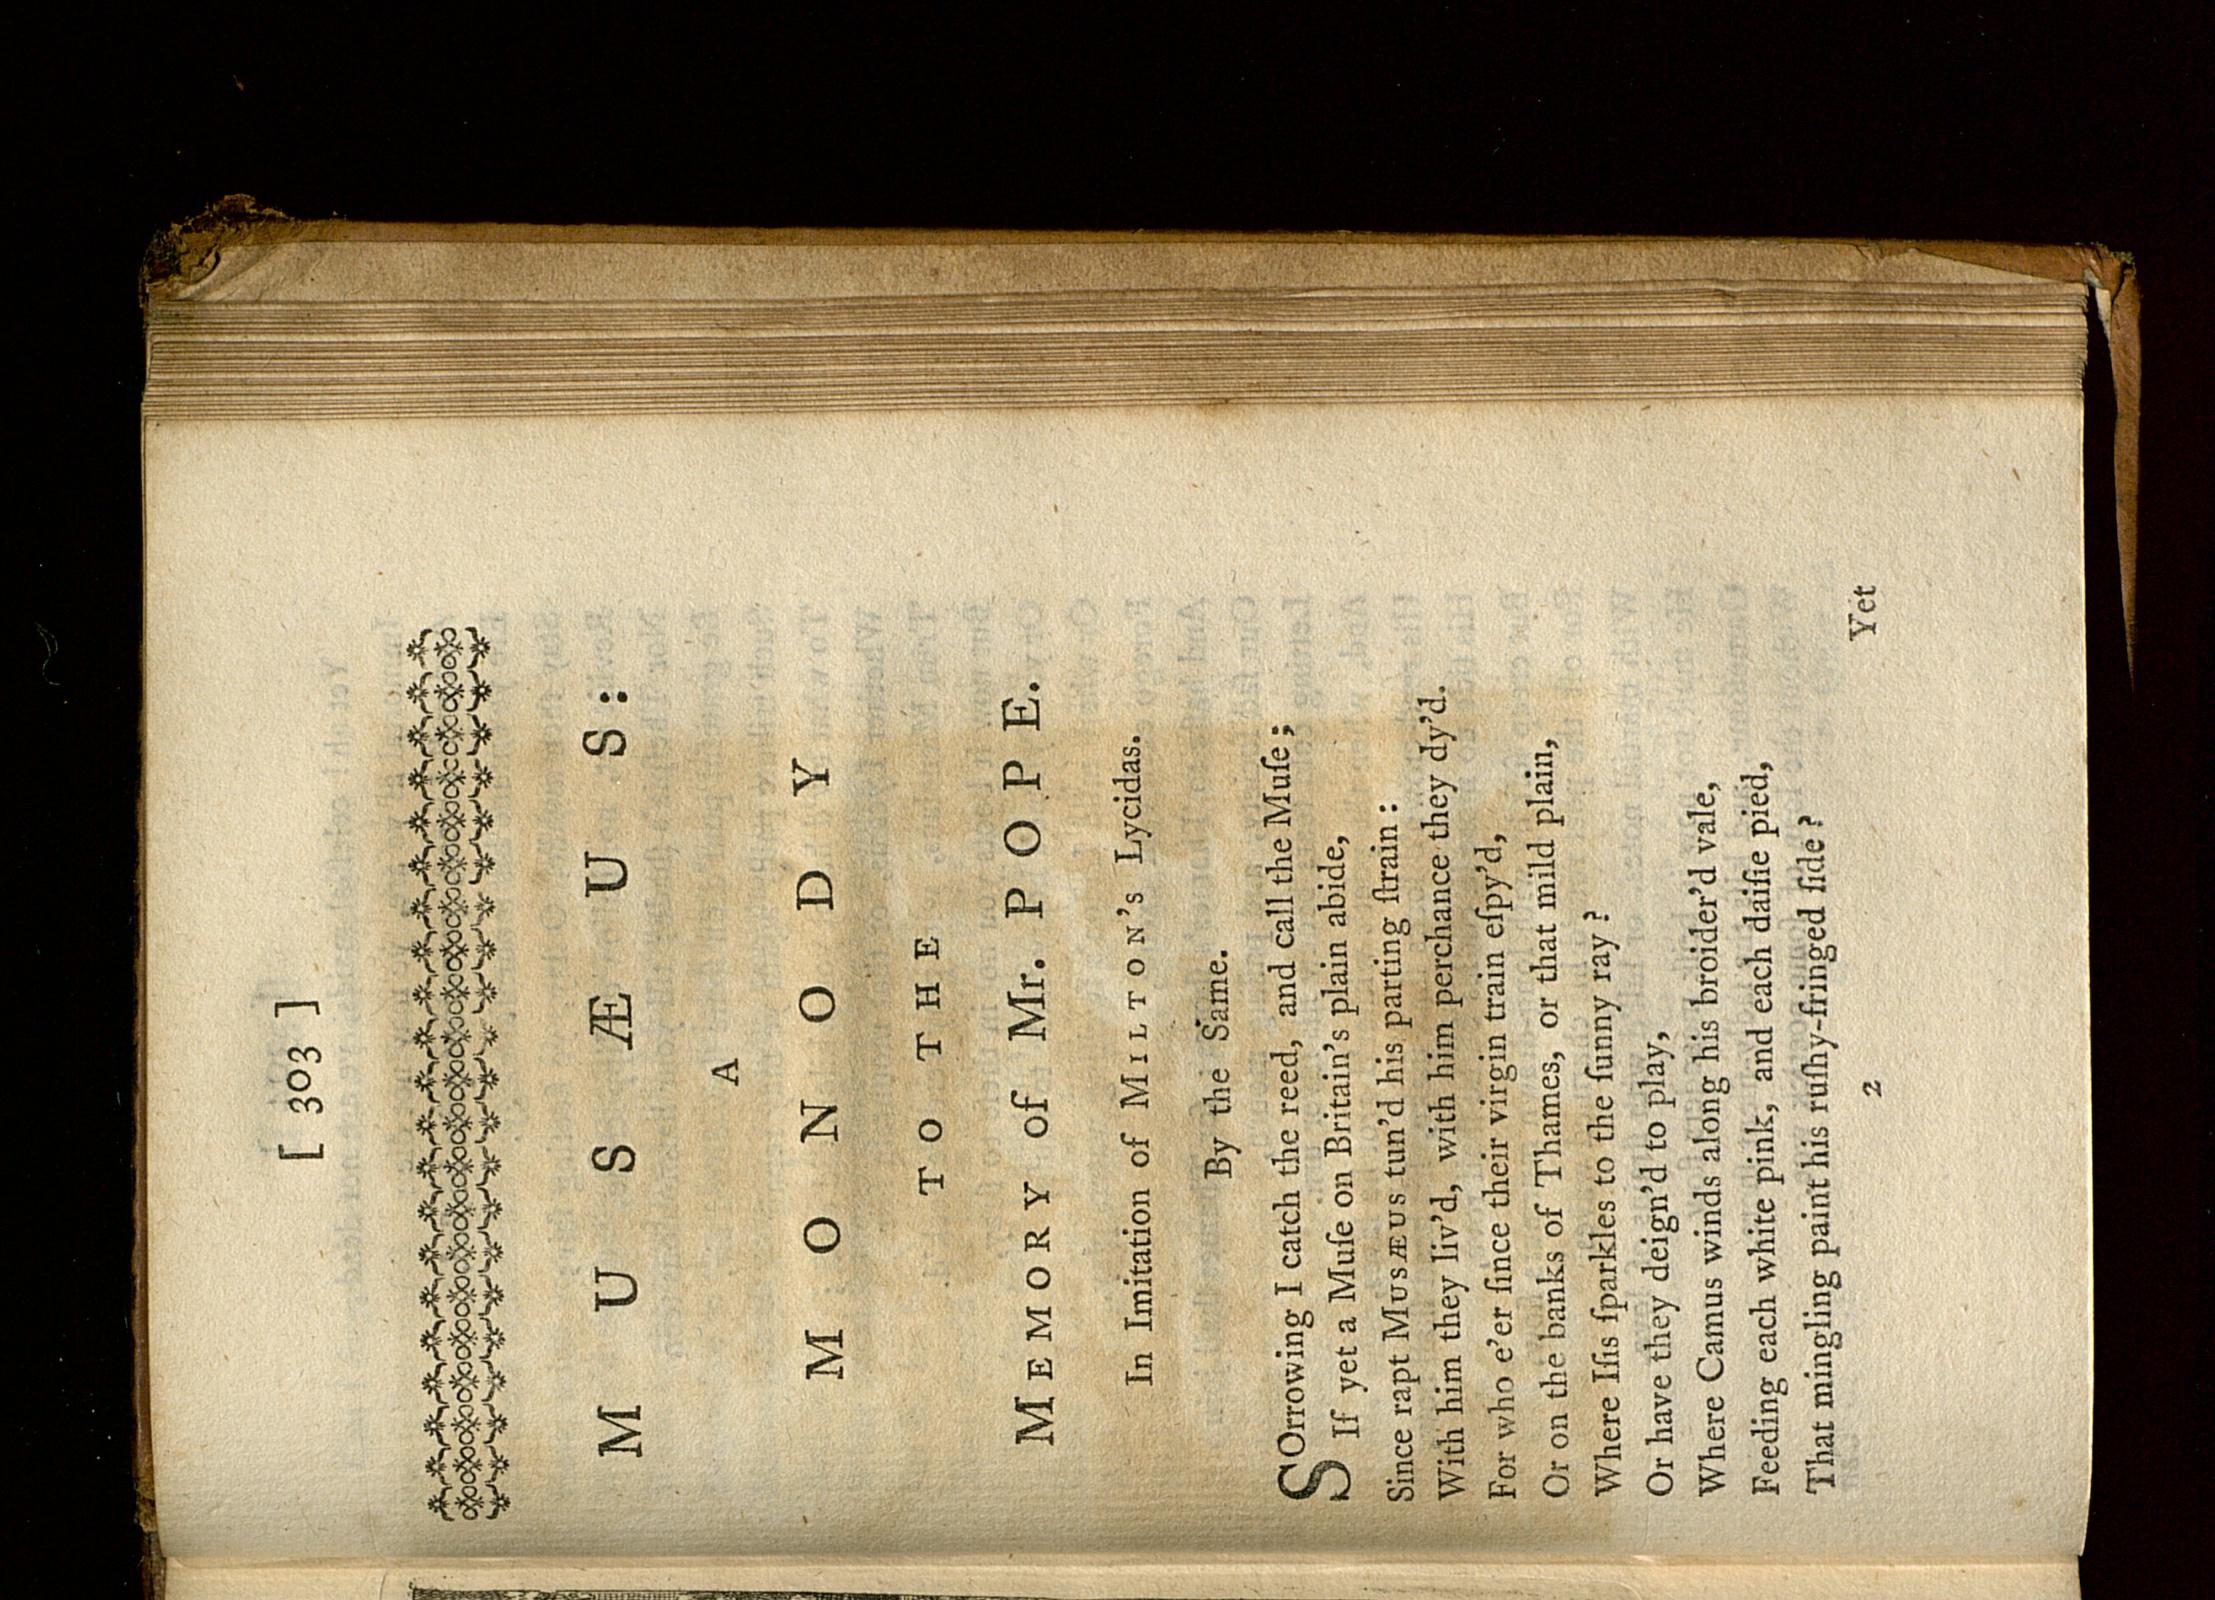 [ 303 ]
MUSÆUS:
A
MONODY
TO THE
MEMORY of Mr. POPE.
In Imitation of MILTON's Lycidas.
By the Same.
SOrrowing I catch the reed, and call the Muſe;
If yet a Muſe on Britain's plain abide,
Since rapt MUSÆUS tun'd his parting ſtrain:
With him they liv'd, with him perchance they dy'd.
For who e'er ſince their virgin train eſpy'd,
Or on the banks of Thames, or that mild plain,
Where Iſis ſparkles to the ſunny ray?
Or have they deign'd to play,
Where Camus winds along his broider'd vale,
Feeding each white pink, and each daiſie pied,
That mingling paint his ruſhy-fringed ſide?
2 Yet